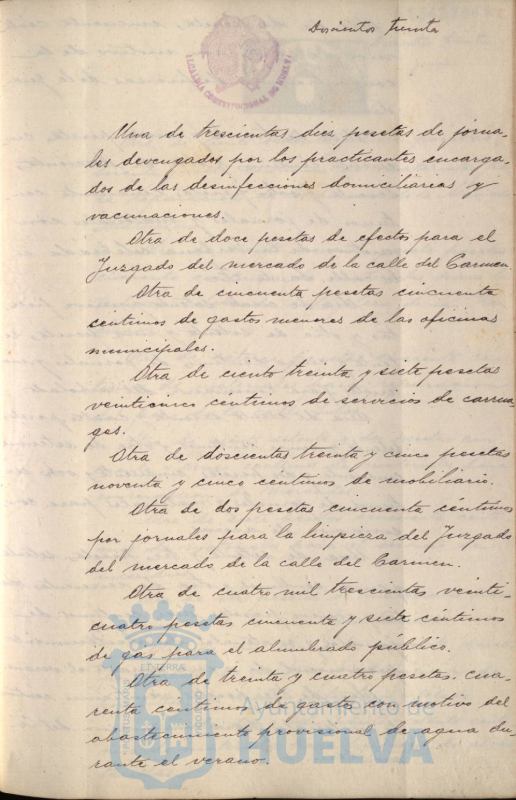 Doscientos treinta
ALCALDIA CONSTITUCIONAL DE HUELVA
Una de trescientas diez pesetas de jorna-
les devengados por los practicantes encarga-
dos de las desinfecciones domiciliarias y
vacunaciones.
Otra de doce pesetas de efectos para el
Juzgado del mercado de la calle del Carmen.
Otra de cincuenta pesetas cincuenta
céntimos de gastos menores de las oficinas
municipales.
Otra de ciento treinta y siete pesetas
veinticinco céntimos de servicios de carrua-
ges.
Otra de doscientas treinta y cinco pesetas
noventa y cinco centimos de mobiliario.
Otra de dos pesetas cincuenta céntimos
por jornales para la limpieza del Juzgado
del mercado de la calle del Carmen.
Otra de cuatro mil trescientas veinti-
cuatro pesetas cincuenta y siete céntimos
de gas para el alumbrado público.
Otra de treinta y cuatro pesetas cua-
renta centimos de gastos con motivo del
abastecimiento provisional de agua du-
rante el verano.
Ayuntamiento de
HUELVA